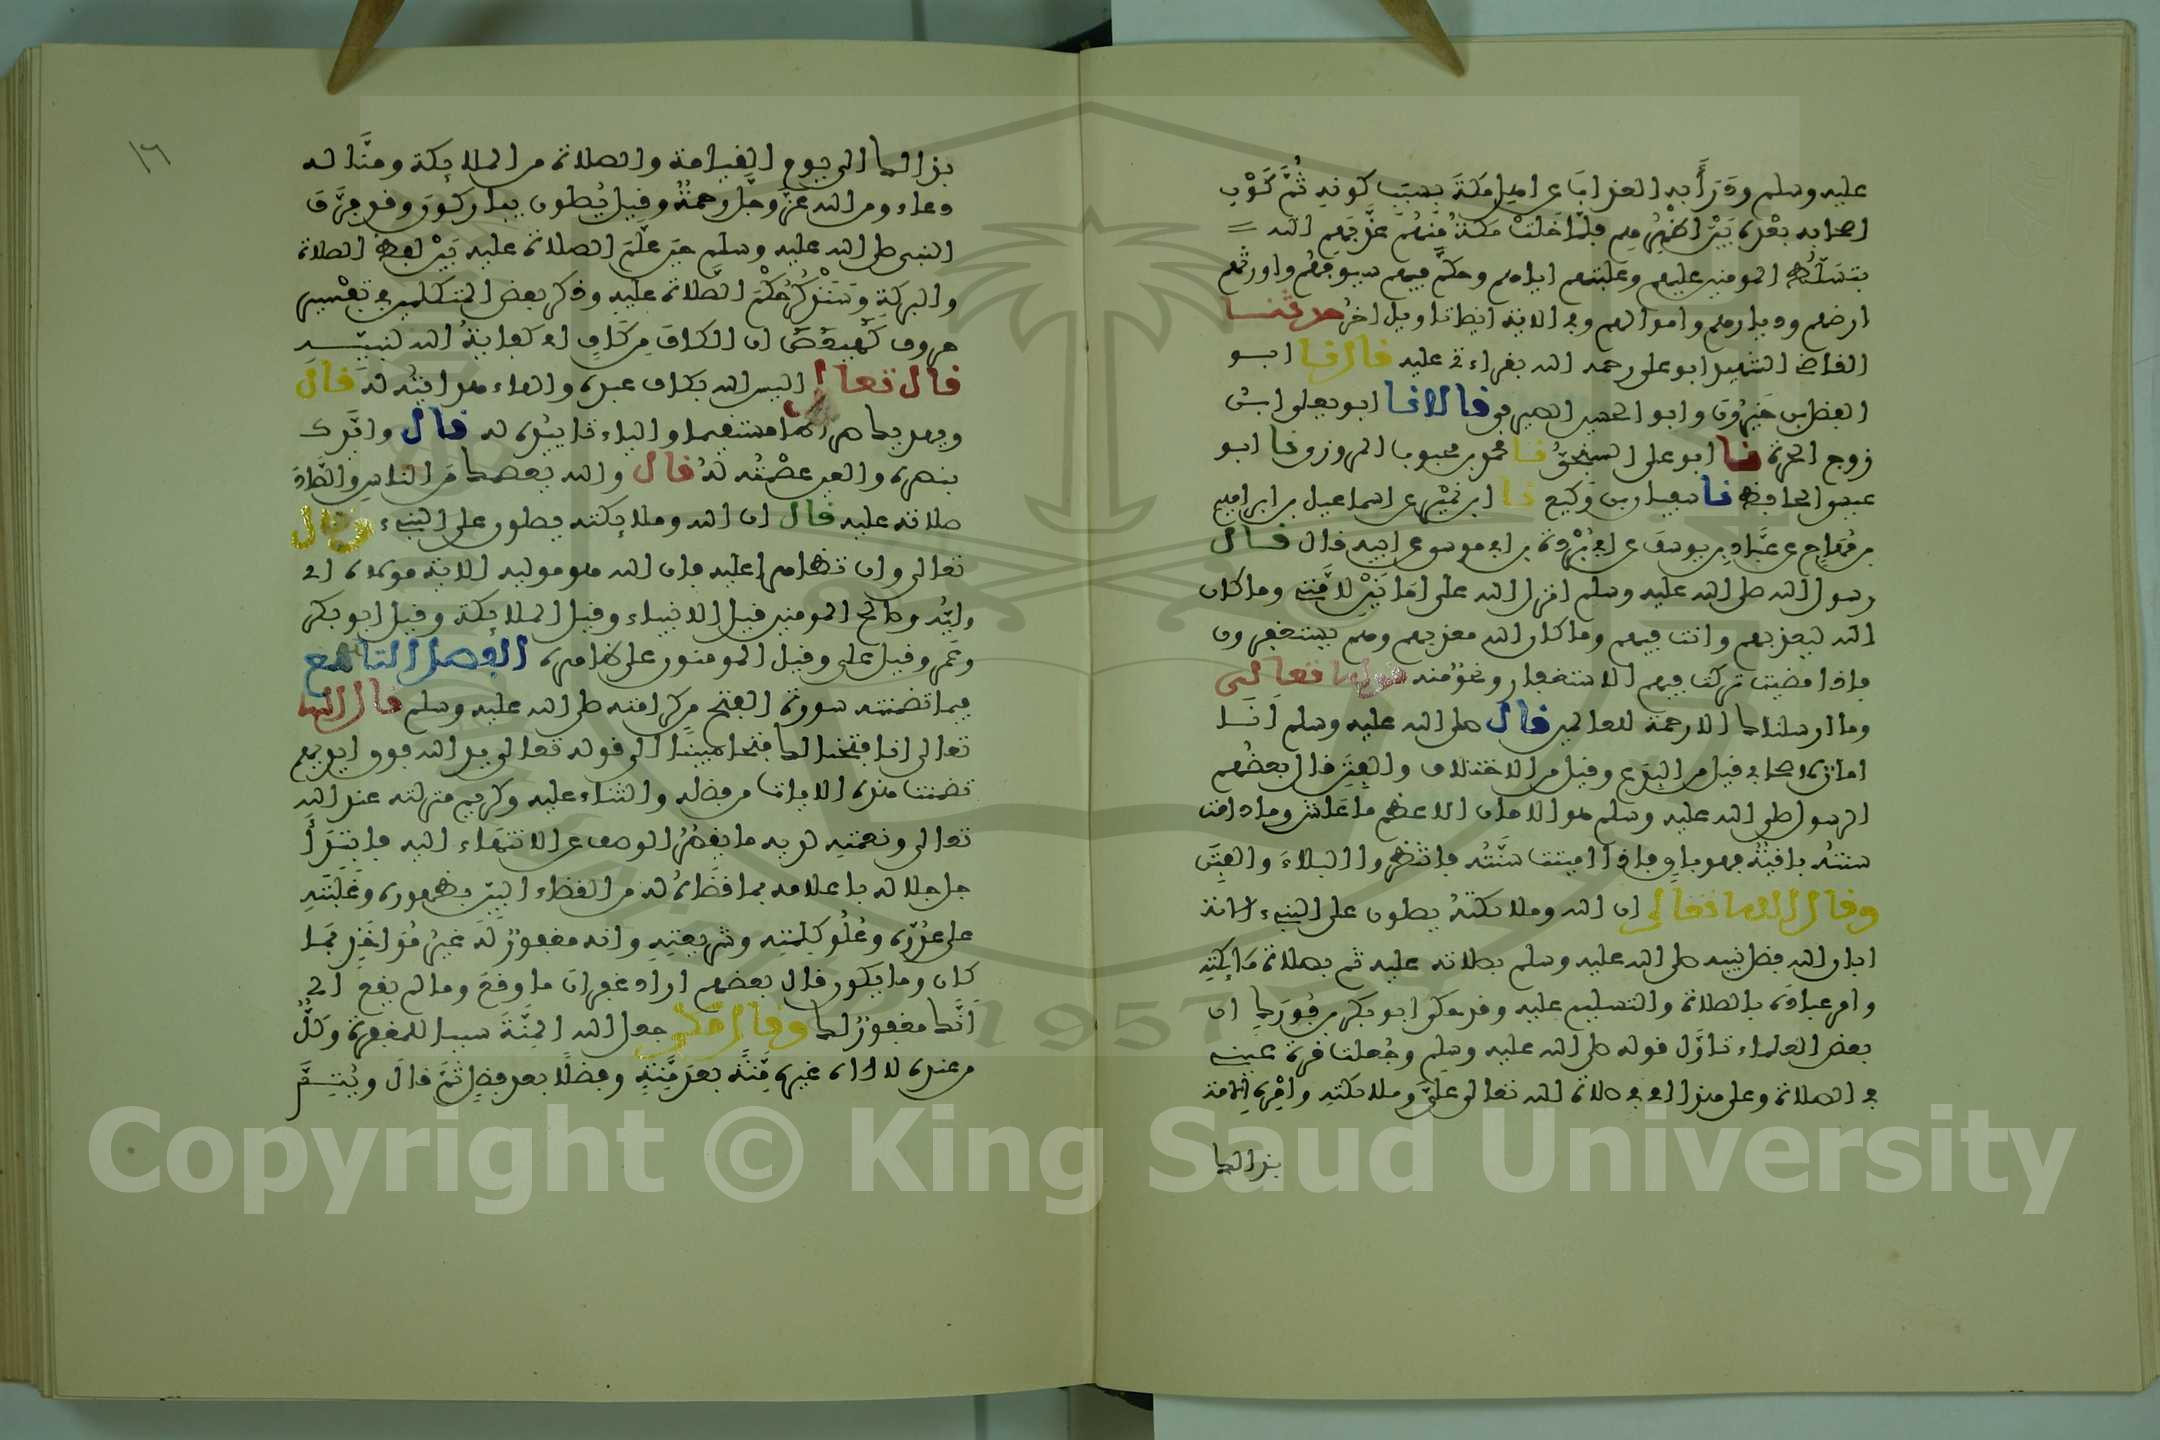 عليه وسلم ودَرَأ به العذابَ عن اهل مكةَ بسبب كونه ثُمَّ كَوْنِ
اصحابه بعْدَه بَيْنَ اظْهُرهم فلمَّا خَلَتْ مكةُ مِنهُمْ عذَّبَهُم الله
بتسَلّطِ المومنين عليهم وغلبتهم اياهم وحكَّم فيهم سيوفَهُم واورثهم
ارضهم وديارهم واموالهم وفي الاية ايضا تاويل اخرُ حدثنا
القاضي الشهيد ابو علي رحمه الله بقراءتي عليه قال نا ابو
الفضل بن خَيْرُونَ وابو الحسين الصيرفي قالا نا ابو يعلى ابن
زوج الحرة نا ابو علي السِّنْجِيّ نا محمد بن محبوب المروزي نا ابو
عيسى الحافظ نا سفيان بن وَكيع نا ابن نُمَيْر عن اسماعيل بن ابراهيم
بن مُهَاجِر عن عَبَّادِ بن يوسف عن ابي بُرْدَة بن ابي موسى عن ابيه قال قال
رسول الله صلى الله عليه وسلم انزل الله علي امَانَيْنِ لامَّتِي وما كان
الله ليعذبهم وانت فيهم وما كان الله معذبهم وهم يستغفرون
فاذا مضيت تركت فيهم الاستغفار ونحوٌ منه قوله تعالى
وما ارسلناك الا رحمة للعالمين قال صلى الله عليه وسلم انَا
امانٌ لاصحابي قيل من البِدَع وقيل من الاختلاف والفِتَنِ قال بعضُهم
الرسول صلى الله عليه وسلم هو الامان الاعظم ما عَاش وما دامت
سنتُه باقيَةٌ فهو باقٍ فاذا اميتت سنَّتُه فانتظروا البلاءَ والفِتَنَ
وقال الله تعالى ان الله وملائكتهُ يصلون على النبيء الاية
ابان الله فضل نبيه صلى الله عليه وسلم بصلاته عليه ثم بصلاة مَلائِكَتِهِ
وامر عبادَه بالصلاة والتسليم عليه وقد حكى ابو بكر بن فُورَكٍ ان
بعض العلماء تاوَّل قوله صلى الله عليه وسلم وجُعلت قرة عيني
في الصلاة وعلى هذا اي في صلاة الله تعالى عليَّ وملائكتِه وامْرِه الامة
بذالك
١٦
بذالك الى يوم القيامة والصلاة من الملائكة ومنَّا له
دعاء ومن الله عَزَّ وجَلَّ رحمةٌ وقيل يُصلون يباركونَ وقد فرَّقَ
النبي صلى الله عليه وسلم حين عَلَّمَ الصلاة عليه بَيْنَ لفظ الصلاة
والبركةِ وسَنَذْكُرُ حُكْمَ الصَّلاة عليه وذكر بعض المتكلمين في تفْسير
حروف كَهيعَصَ ان الكافَ مِن كَافٍ اي كفايةُ الله لنبيّه
قال تعالى اليس الله بكاف عبده والهاء هدايتُه لَه قال
ويهديك صراطا مستقيما والياء تاييدُه له قال وايَّدك
بنصره والعين عصْمتُه لهُ قال والله يعصمك مَن الناس والصَّادَ
صلاته عليه قال ان الله وملائكته يصلون على النبيء وقال
تعالى وان تظاهرا عليه فان الله هو موليه الاية مولاه اي
وليّه وصالح المومنين قيل الانبياء وقيل الملائكة وقيل ابو بكر
وعمر وقيل علي وقيل المومنون على ظاهره الفصل التاسع
فيما تضمنته سورة الفتح من كراماته صلى الله عليه وسلم قال الله
تعالى انا فتحنا لك فتحا مبينًا الى قوله تعالى يد الله فوق ايديهم
تضمنت هذه الايات من فضله والثناء عليه وكريم منزلته عند الله
تعالى ونعمتِه لديه ما يقصُر الوصف عن الانتهاء اليه فابْتَدَأ
جل جلاله باعلامه بما قضَاهُ له من القضاء البيّن بظهوره وغَلَبَتِهِ
على عدُوّه وعُلُوّ كلمتِهِ وشريعَتِهِ وانه مغفورٌ لَه غيرُ مُؤاخَذٍ بمَا
كان وما يكون قال بعضهم اراد غفران ما وقعَ وما لم يقع اي
انَّك مغفورٌ لك وقال مكي جعل الله المِنَّةَ سببا للمغفرة وكلٌّ
من عنده لا اله غيره مِنَّةً بعدَ مِنَّةٍ وفضلًا بعد فضلٍ ثمَّ قال ويُتِمَّ
Copyright © King Saud University
1957